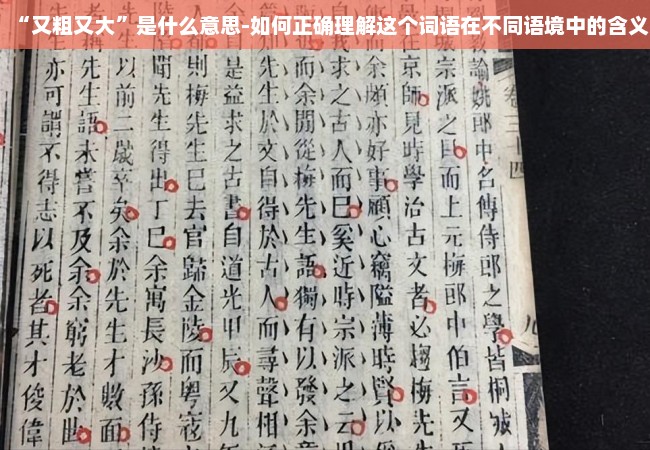 “又粗又大”是什么意思-如何正确理解这个词语在不同语境中的含义
論姚郎中名傳侍郎之學皆桐城人
城宗派之目而上元梅郎中伯言又
在京師見時學治古文者必趨梅先
而余頗亦好事顧心竊隘薄時賢以
自求之古人而已奚近時宗派之云
而余閒從梅先生語獨有以發余意
先生於文自得於古人而尋聲相
是益求之古書自道光甲辰又九年
則梅先生已去官歸金陵而粵寇
聞先生得出丁巳余寓長沙孫侍
以前二歲卒矣余於先生才數面
先生語未嘗不及余余窮老於世
亦可謂不得志以死者其才俊偉